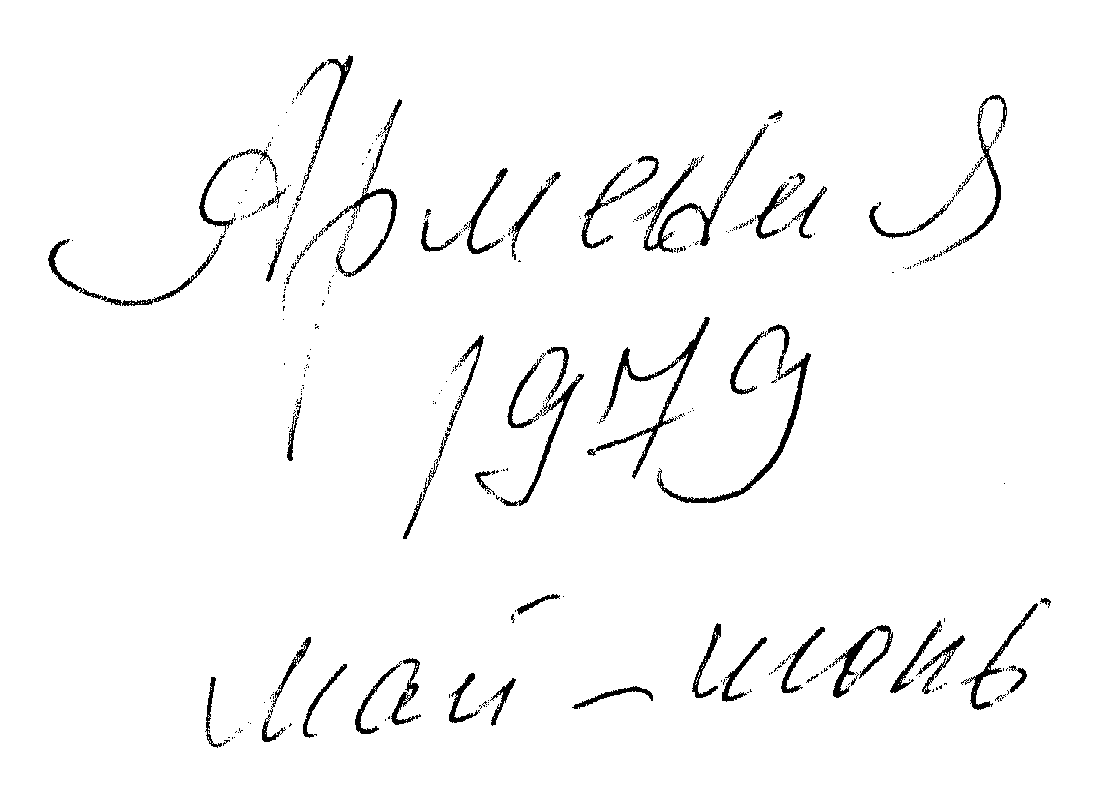 Армения
1979
май - июнь